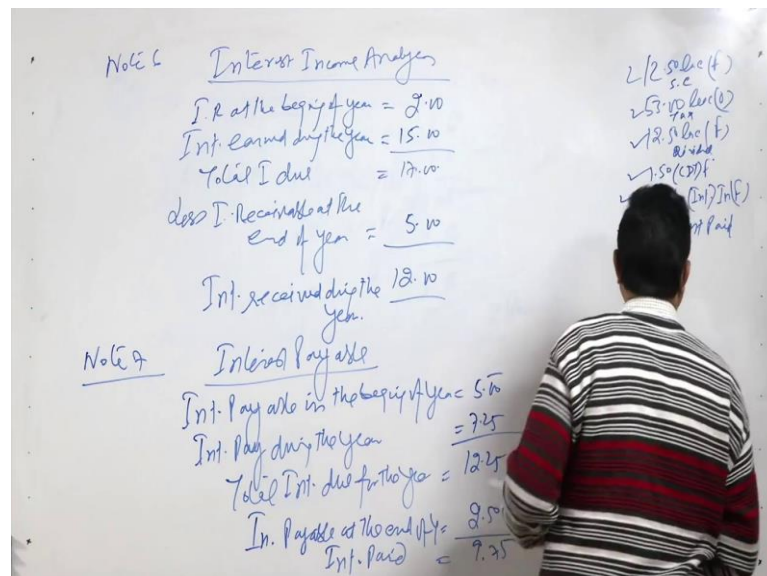 Note 6 Interest Income Analyses
I.R at the beging of year = 2.00
Int. earned during the year = 15.00
Total I due = 17.00
Less I. Receivable at the
end of year = 5.00
Int. received during the 12.00
year.
Note 7 Interest Payable
Int. Payable in the beging of year = 5.00
Int. Pay during the year = 7.25
Total Int. due for the year = 12.25
In. Payable at the end of Y = 2.50
Int. Paid = 9.75
12.50 lac (f)
S.C
53.00 lac (o)
Tax
12.50 lac (f)
1.50 (CDT) f
(Int) In (f)
Paid